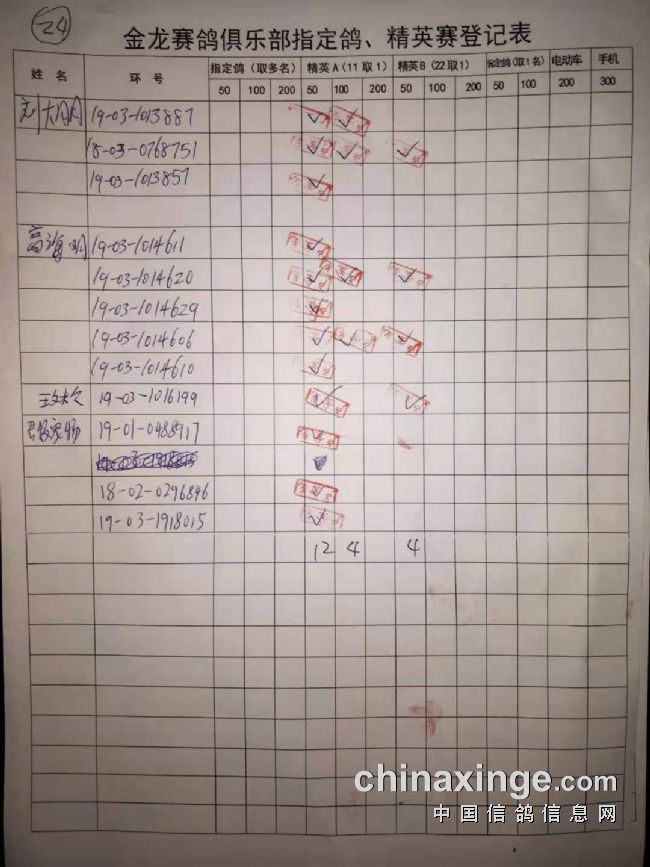 24
金龙赛鸽俱乐部指定鸽、精英赛登记表
姓名 环号 指定鸽（取多名） 精英A（11取1） 精英B（22取1） 指定鸽（取1名） 电动车 手机
50 100 200 50 100 200 50 100 200 50 100 200 300
19-03-1013887 ✓ ✓
18-03-0768751 ✓ ✓ ✓
19-03-1013857 ✓
高海明 19-03-1014611 ✓
19-03-1014620 ✓ ✓ ✓
19-03-1014629 ✓
19-03-1014606 ✓ ✓ ✓
19-03-1014610 ✓
19-03-1016199 ✓ ✓
19-01-0488917 ✓
18-02-0296846 ✓
19-03-1918015 ✓
12 4 4
chinaxinge.com
中国信鸽信息网